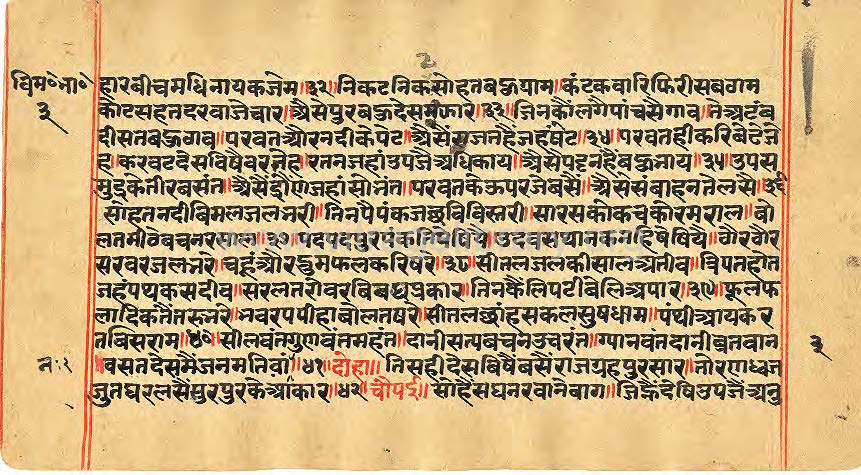 २
विम॰ना॰
३
हारबीचमधिनायकजेम॥३२॥निकटनिकसोहतबहुग्राम॥कंटकवारिफिरीसबगम
कोटसहतदरवाजेचार॥ऐसेपुरबहुदेसमंफार॥३३॥जिनकौंलगैपांचसैगाव॥तेअटंब
दीसतबहुगाव॥परवतऔरनदीकेपेट॥ऐसे जहषेट॥३४॥परवतहीकरिबेढेजे
ह॥करवटदेसविषैवरतेह॥रतनजहांउपजैअधिकाय॥ऐसेपट्टनहैबहुनाय॥३५॥उपस
मुद्रकेतीरबसंत॥ऐसैंद्रोणजहांसोनंत॥परवतकेऊपरजेबसैं॥ऐसेसंबाहनतेलसै॥३६
सोहतनदीविमलजलनरी॥तिनपैपंकजछविविसरी॥सारसकोकचकोरमराल॥बो
लतमीठेबचनरसाल॥३७॥पदपदपुर पंकति ॥उदबसथानकनहिपेषियै॥गैरगैर
सरवरजलनरे॥चहुंऔरद्रुमफलकरिषरे॥३८॥सीतलजलकीसालअतीव॥विपतहोत
जहंपथकसदीव॥सरलतरोवरबिबधप्रकार॥तिनकैंलिपटीबेलिअपार॥३९॥फूलफ
लादिकतैंतरुनरे॥नवरपपीहाबोलतषरे॥सीतलछांहसकलसुषधाम॥पंथीआयकर
तबिसराम॥४०॥सीलवंतगुणवंतमहंत॥दानीसत्यबचनउचरंत॥ग्यानवंतदानीब्रतवान
वसतदेसमैंजनमतिवां॥४१॥दोहा॥तिसहीदेसबिषैंबसैंराजग्रहपुरसार॥तोरणध्वज
जुतघरलसैंसुरपुरकेआकार॥४२॥चौपई॥सोहैसघनरवानेबाग॥जिह्नैदेषिउपजैंअनु
३